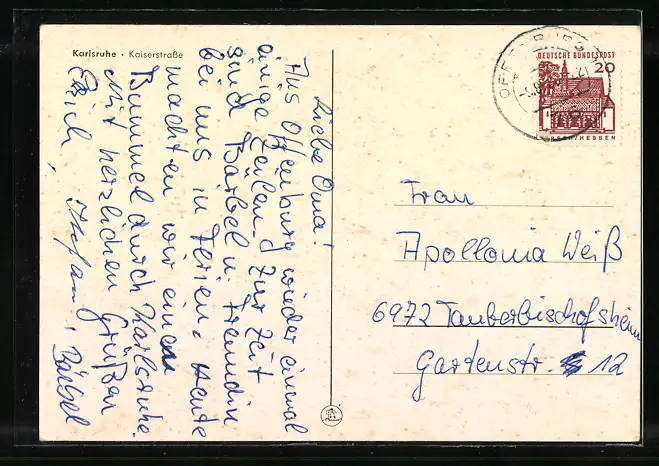 Karlsruhe · Kaiserstraße
Liebe Oma!
Aus Offenburg wieder einmal
einige Zeilen. Zur Zeit
sind Bärbel u. Freundin
bei uns in Ferien. Heute
machten wir einen
Bummel durch Karlsruhe.
Mit herzlichen Grüßen
Erich, Stefan, Bärbel
OFFENBURG
DEUTSCHE BUNDESPOST
20
LORSCH/HESSEN
Frau
Apollonia Weiß
6972 Tauberbischofsheim
Gartenstr. 12